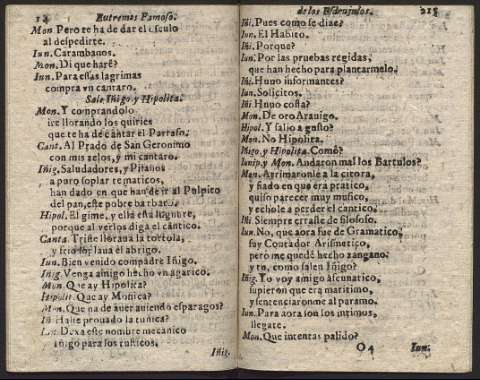 Entremes Famoso.
Mon. Pero te ha de dar el
al despedirte.
Iun. Catambanos.
Mon. Di que harè?
Iun. Para essas lagrimas
compra vn cantaro.
Sale Iñigo y Hipolita.
Mon. Y comprandolo
ire llorando los quiries
que te ha de cantar el Parraso.
Cant. Al Prado de San Geronimo
con mis zelos, y mi cantaro.
Iñig. Saludadores, y
a puro soplar tematicos,
han dado en que han de ir al Pulpito
del pan, este pobre barbaro.
Hipol. El gime, y ella esta
porque al verlos diga el cántico.
Canta. Triste lloraua la tortola,
y laua el abrigo.
Iun. Bien venido compadre Iñigo.
Iñig. Venga amigo hecho vn agarico.
Mon. Que ay Hipolita?
Hipolit. Que ay Monica?
Mon. Que ha de auer auiendo esparagos?
Iñi. Haste prouado la tunica?
Iun. Dexa esse nombre mecanico
Iñigo para los rusticos.
Iñig.
de los Esdrujulos.
Iñi. Pues como se dize?
Iun. El Habito.
Iñi. Porque?
Iun. Por las pruebas rigidas,
que han hecho para plantarmelo.
Iñi. Huuo informantes?
Iun. Solicitos.
Iñi. Huuo costa?
Mon. De oro Arauigo.
Hipol. Y salio a gusto?
Mon. No Hipolita.
Iñigo. y Hipolita. Comò?
Iunip. y Mon. Andaron mal los Bartulos?
Mon. Arrimaronle a la citora,
y fiado en que era pratico,
quiso parecer muy musico,
y echole a perder el cantico.
Iñi. Siempre erraste de filosofo.
Iun. No, que aora fue de Gramatico,
soy Contador Arismetico,
pero me quedè hecho zangano:
y tu, como salen Iñigo?
Iñig. Yo voy amigo
supieron que era maritimo,
y sentenciaronme al paramo.
Iun. Para aora son los intimos,
llegate.
Mon. Que intentas palido?
O4
Iun.